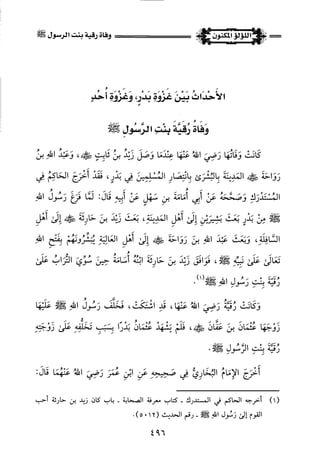 اللؤلؤ المكنون
وفاة رقية بنت الرسول ﷺ
الأَحْدَاثُ بَيْنَ غَزْوَةِ بَدْرٍ، وَغَزْوَةِ أُحُدٍ
وَفَاةُ رُقَيَّةَ بِنْتِ الرَّسُولِ ﷺ
كَانَتْ وَفَاتُهَا رَضِيَ اللهُ عَنْهَا عِنْدَمَا وَصَلَ زَيْدُ بنُ ثَابِتٍ ﵁، وَعَبْدُ اللهِ بنُ
رَوَاحَةَ ﵁ المَدِينَةَ بِالْبُشْرَى بِانْتِصَارِ المُسْلِمِينَ فِي بَدْرٍ، فَقَدْ أَخْرَجَ الحَاكِمُ فِي
المُسْتَدْرَكِ وَصَحَّحَهُ عَنْ أَبِي أُمَامَةَ بنِ سَهْلٍ عَنْ أَبِيهِ قَالَ: لَمَّا فَرَغَ رَسُولُ اللهِ
ﷺ مِنْ بَدْرٍ بَعَثَ بَشِيرَيْنِ إِلَى أَهْلِ المَدِينَةِ، بَعَثَ زَيْدَ بنَ حَارِثَةَ ﵁ إِلَى أَهْلِ
السَّافِلَةِ، وَبَعَثَ عَبْدَ اللهِ بنَ رَوَاحَةَ ﵁ إِلَى أَهْلِ العَالِيَةِ يُبَشِّرُونَهُمْ بِفَتْحِ اللهِ
تَعَالَى عَلَى نَبِيِّهِ ﷺ، فَوَافَقَ زَيْدَ بنَ حَارِثَةَ ابْنُهُ أُسَامَةُ حِينَ سُوِّيَ التُّرَابُ عَلَى
رُقَيَّةَ بِنْتِ رَسُولِ اللهِ ﷺ(١).
وَكَانَتْ رُقَيَّةُ رَضِيَ اللهُ عَنْهَا، قَدِ اشْتَكَتْ، فَخَلَّفَ رَسُولُ اللهِ ﷺ عَلَيْهَا
زَوْجَهَا عُثْمَانَ بنَ عَفَّانَ ﵁، فَلَمْ يَشْهَدْ عُثْمَانُ بَدْرًا بِسَبَبِ تَخَلُّفِهِ عَلَى زَوْجَتِهِ
رُقَيَّةَ بِنْتِ الرَّسُولِ ﷺ.
أَخْرَجَ الإِمَامُ البُخَارِيُّ فِي صَحِيحِهِ عَنِ ابْنِ عُمَرَ رَضِيَ اللهُ عَنْهُمَا قَالَ:
(١) أخرجه الحاكم في المستدرك - كتاب معرفة الصحابة - باب كان زيد بن حارثة أحب
القوم إلى رَسُول اللهِ ﷺ - رقم الحديث (٥٠١٢).
٤٩٦